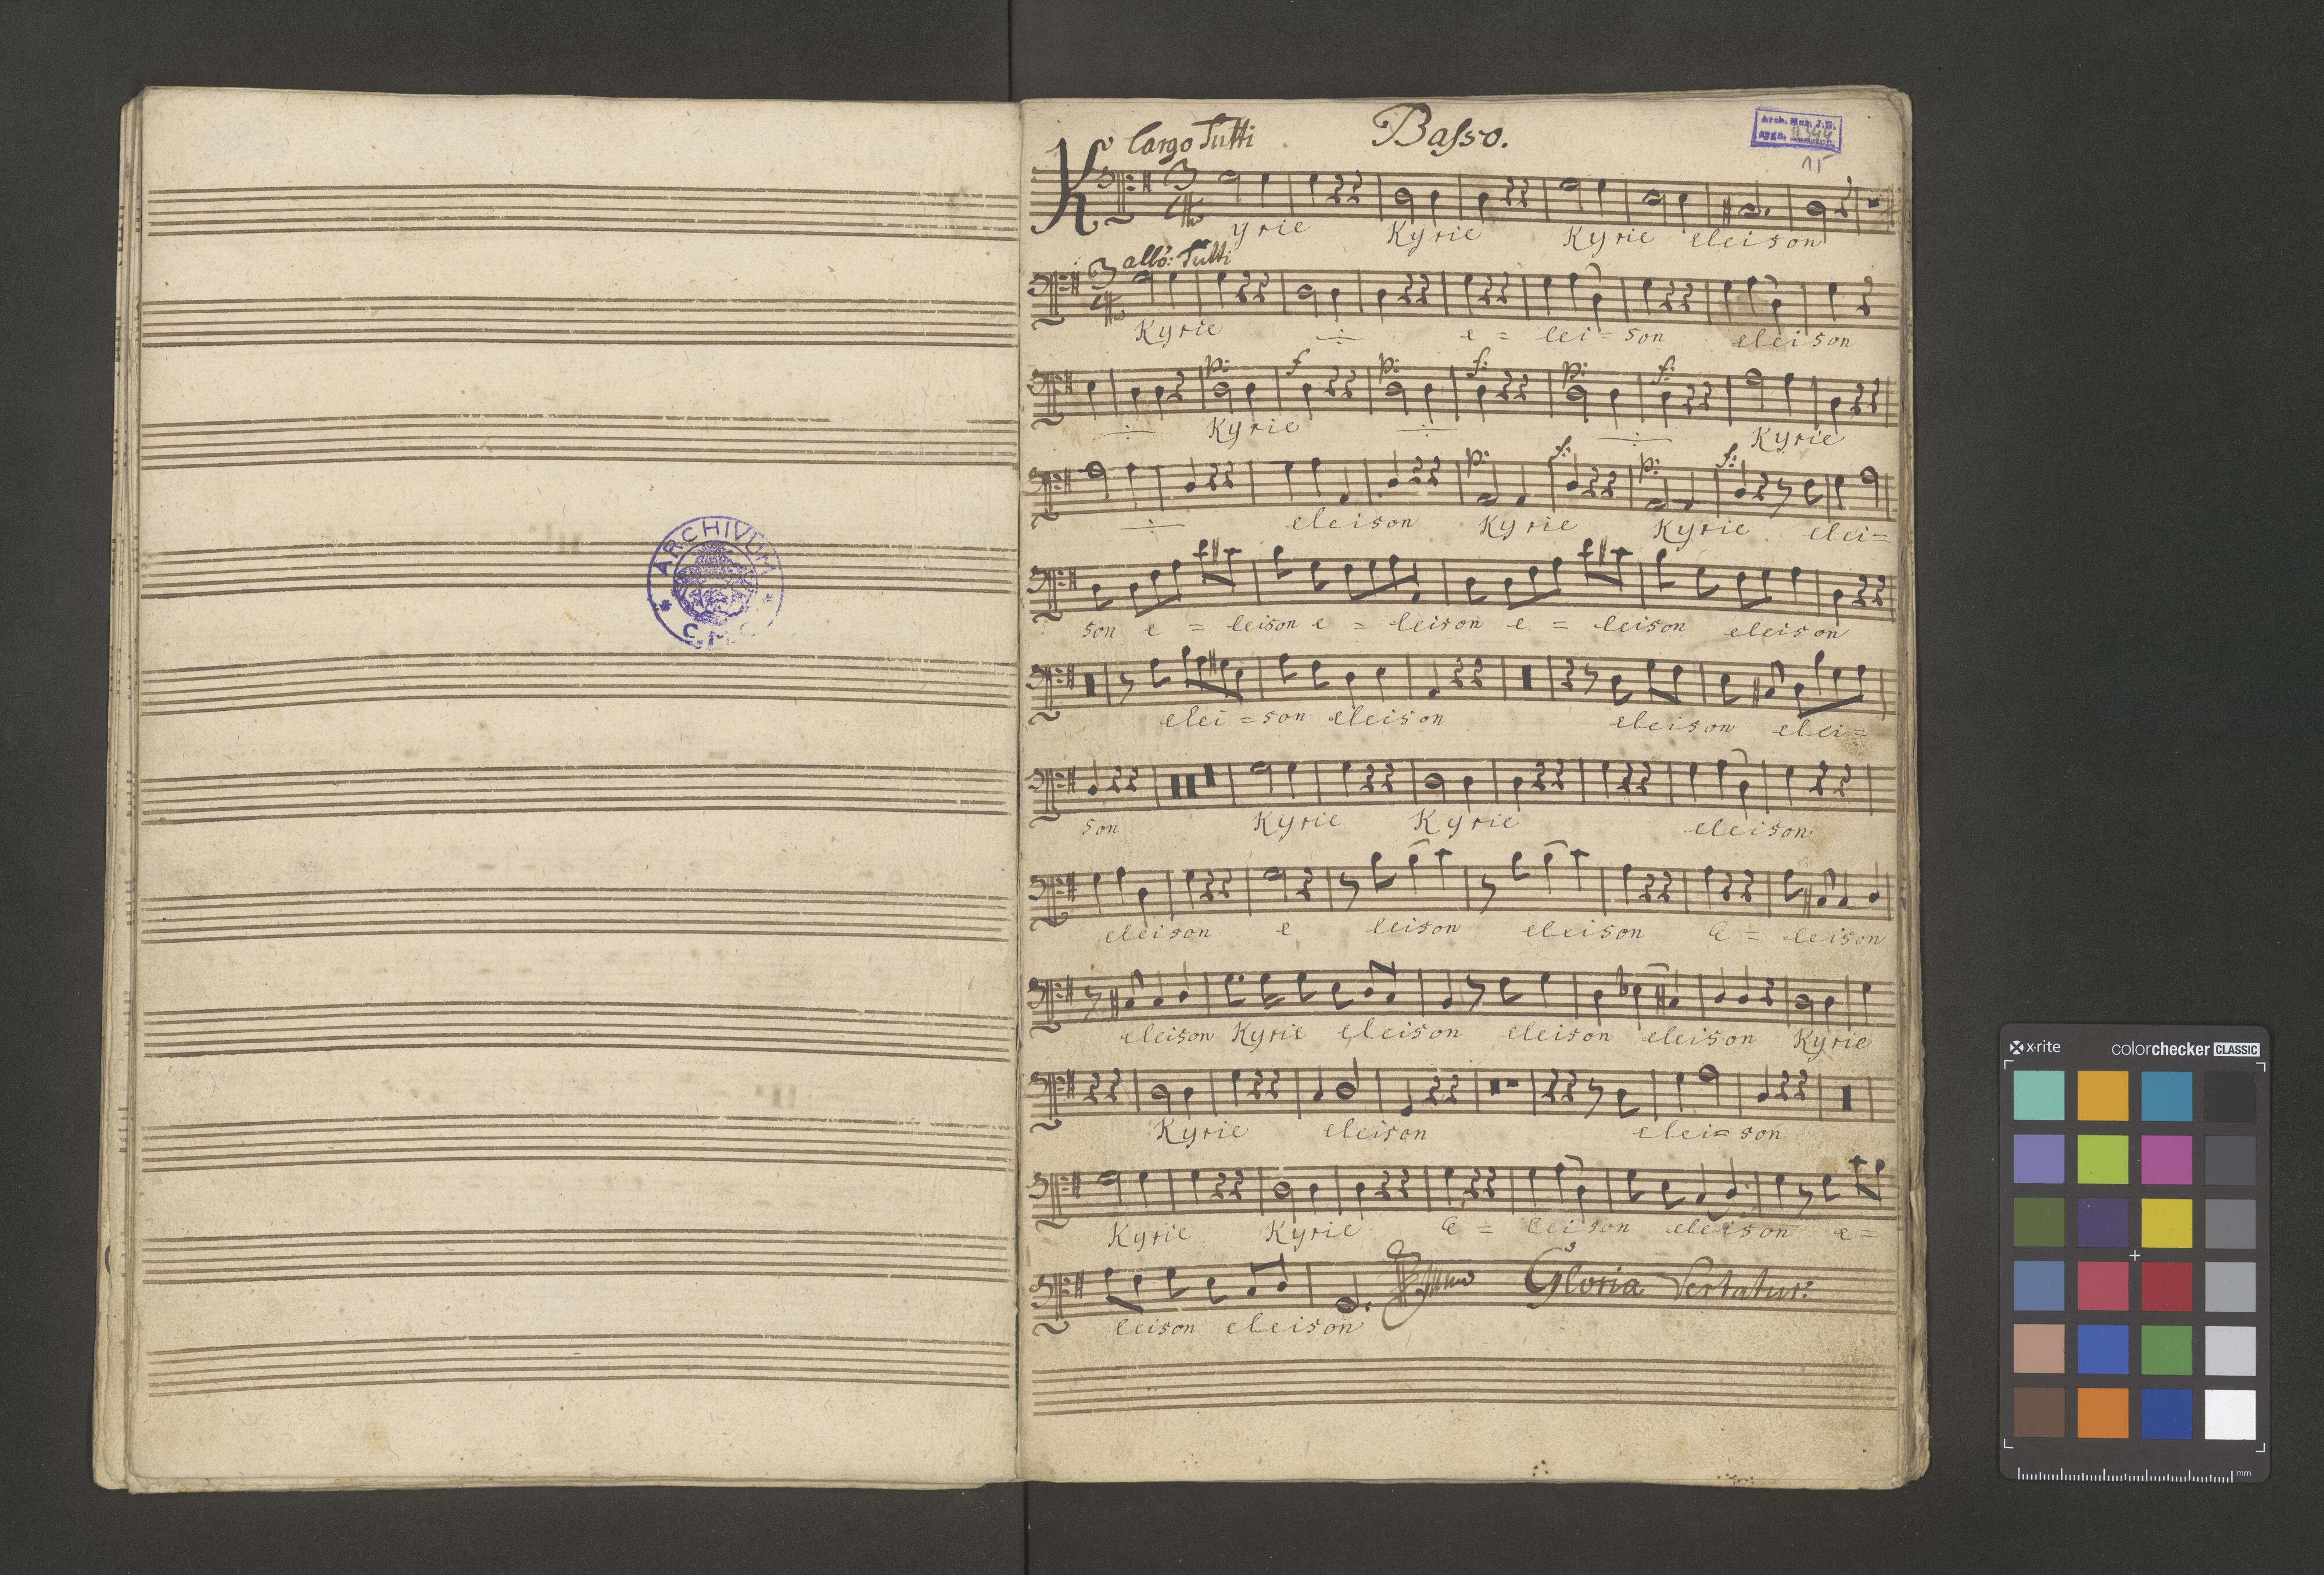 ARCHIVUM
Largo Tutti Basso.
Arch. Muz. J.G.
15
3 4
Kyrie Kyrie Kyrie eleison
allo: Tutti
3 4
Kyrie ÷ e = lei = son eleison
p: f p: f: p: f:
÷ Kyrie ÷ ÷ Kyrie
p: f: p: f:
÷ eleison Kyrie Kyrie elei=
son e = leison e = leison e = leison eleison
elei = son eleison eleison elei =
son Kyrie Kyrie eleison
eleison e leison eleison e = leison
eleison Kyrie eleison eleison eleison Kyrie
Kyrie eleison elei= son
Kyrie Kyrie e = leison eleison e =
Gloria Vertatur:
leison eleison
x-rite colorchecker CLASSIC
mm